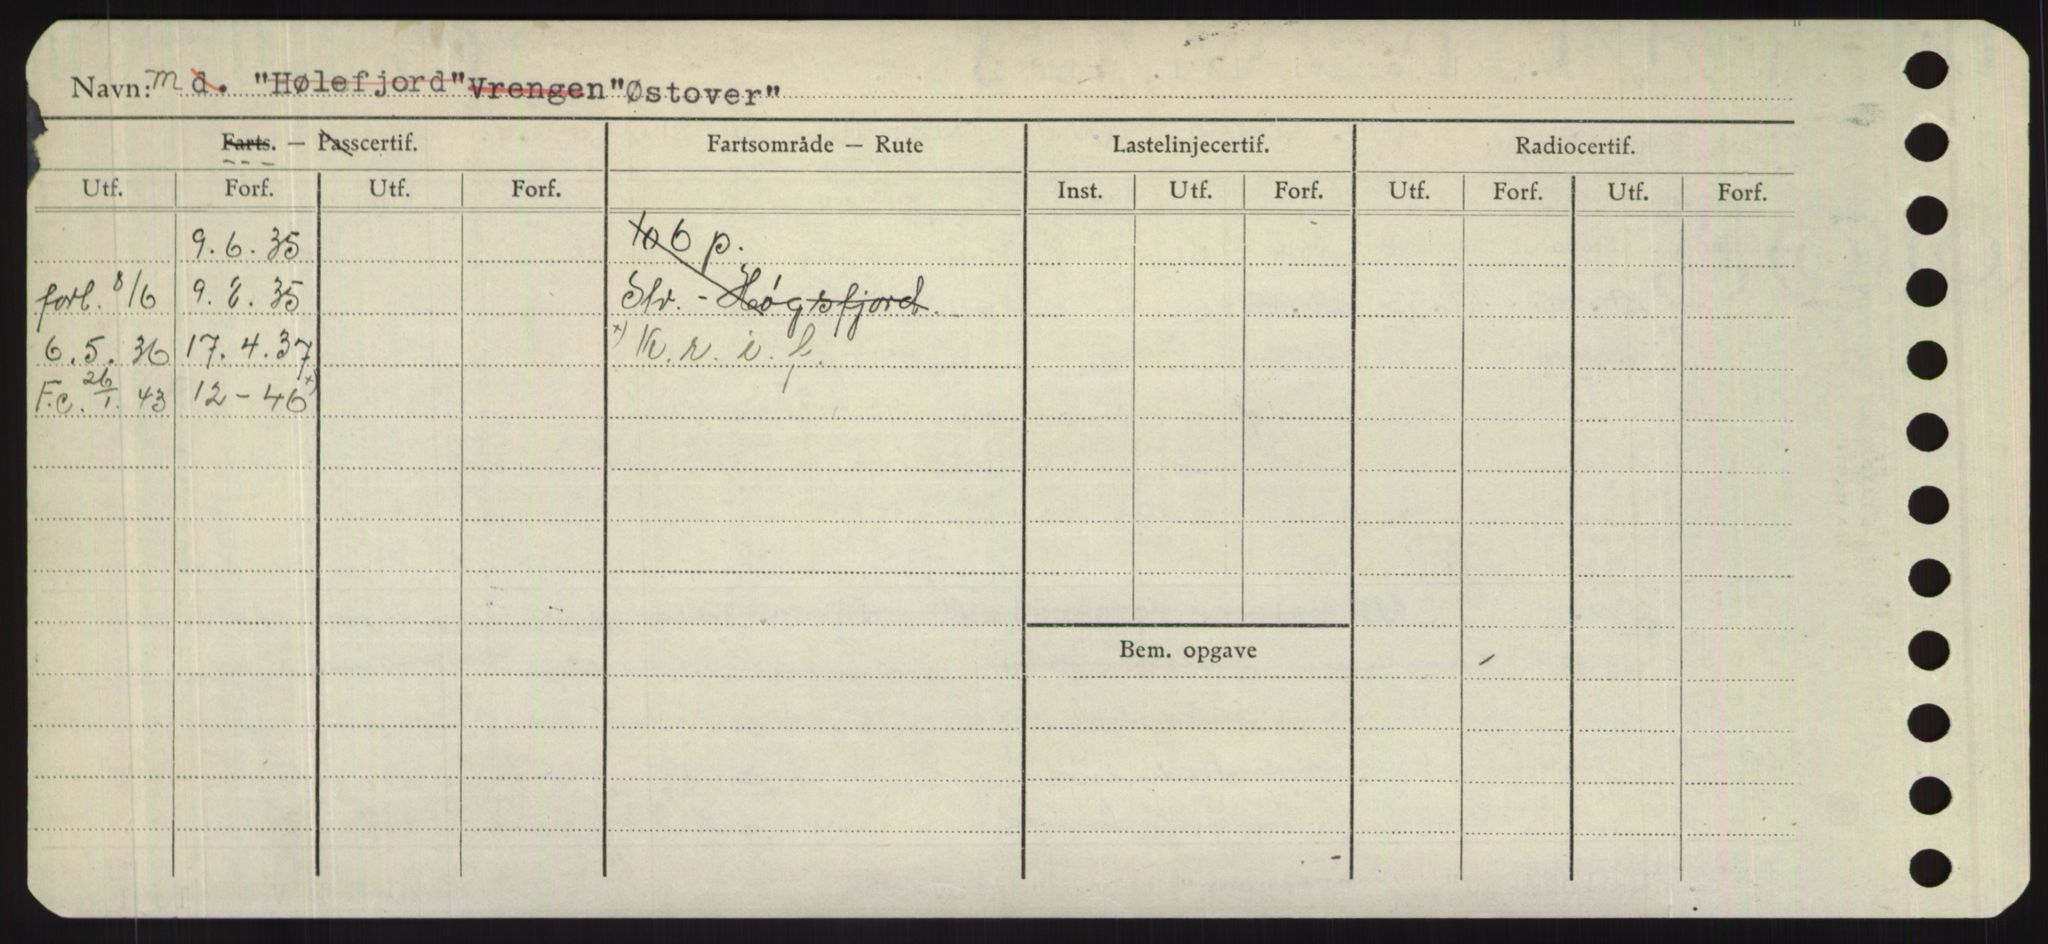 Navn: M d. "Hølefjord" Vrengen "Østover"
Farts. — Passcertif. Fartsområde — Rute Lastelinjecertif. Radiocertif.
Utf. Forf. Utf. Forf. Inst. Utf. Forf. Utf. Forf. Utf. Forf.
9.6.35 106 p.
forl. 8/6 9.8.35 Stv. - Høgsfjord.
6.5.36 17.4.37 x) K. r. i. f.
F.c. 26/1. 43 12-46 x)
Bem. opgave